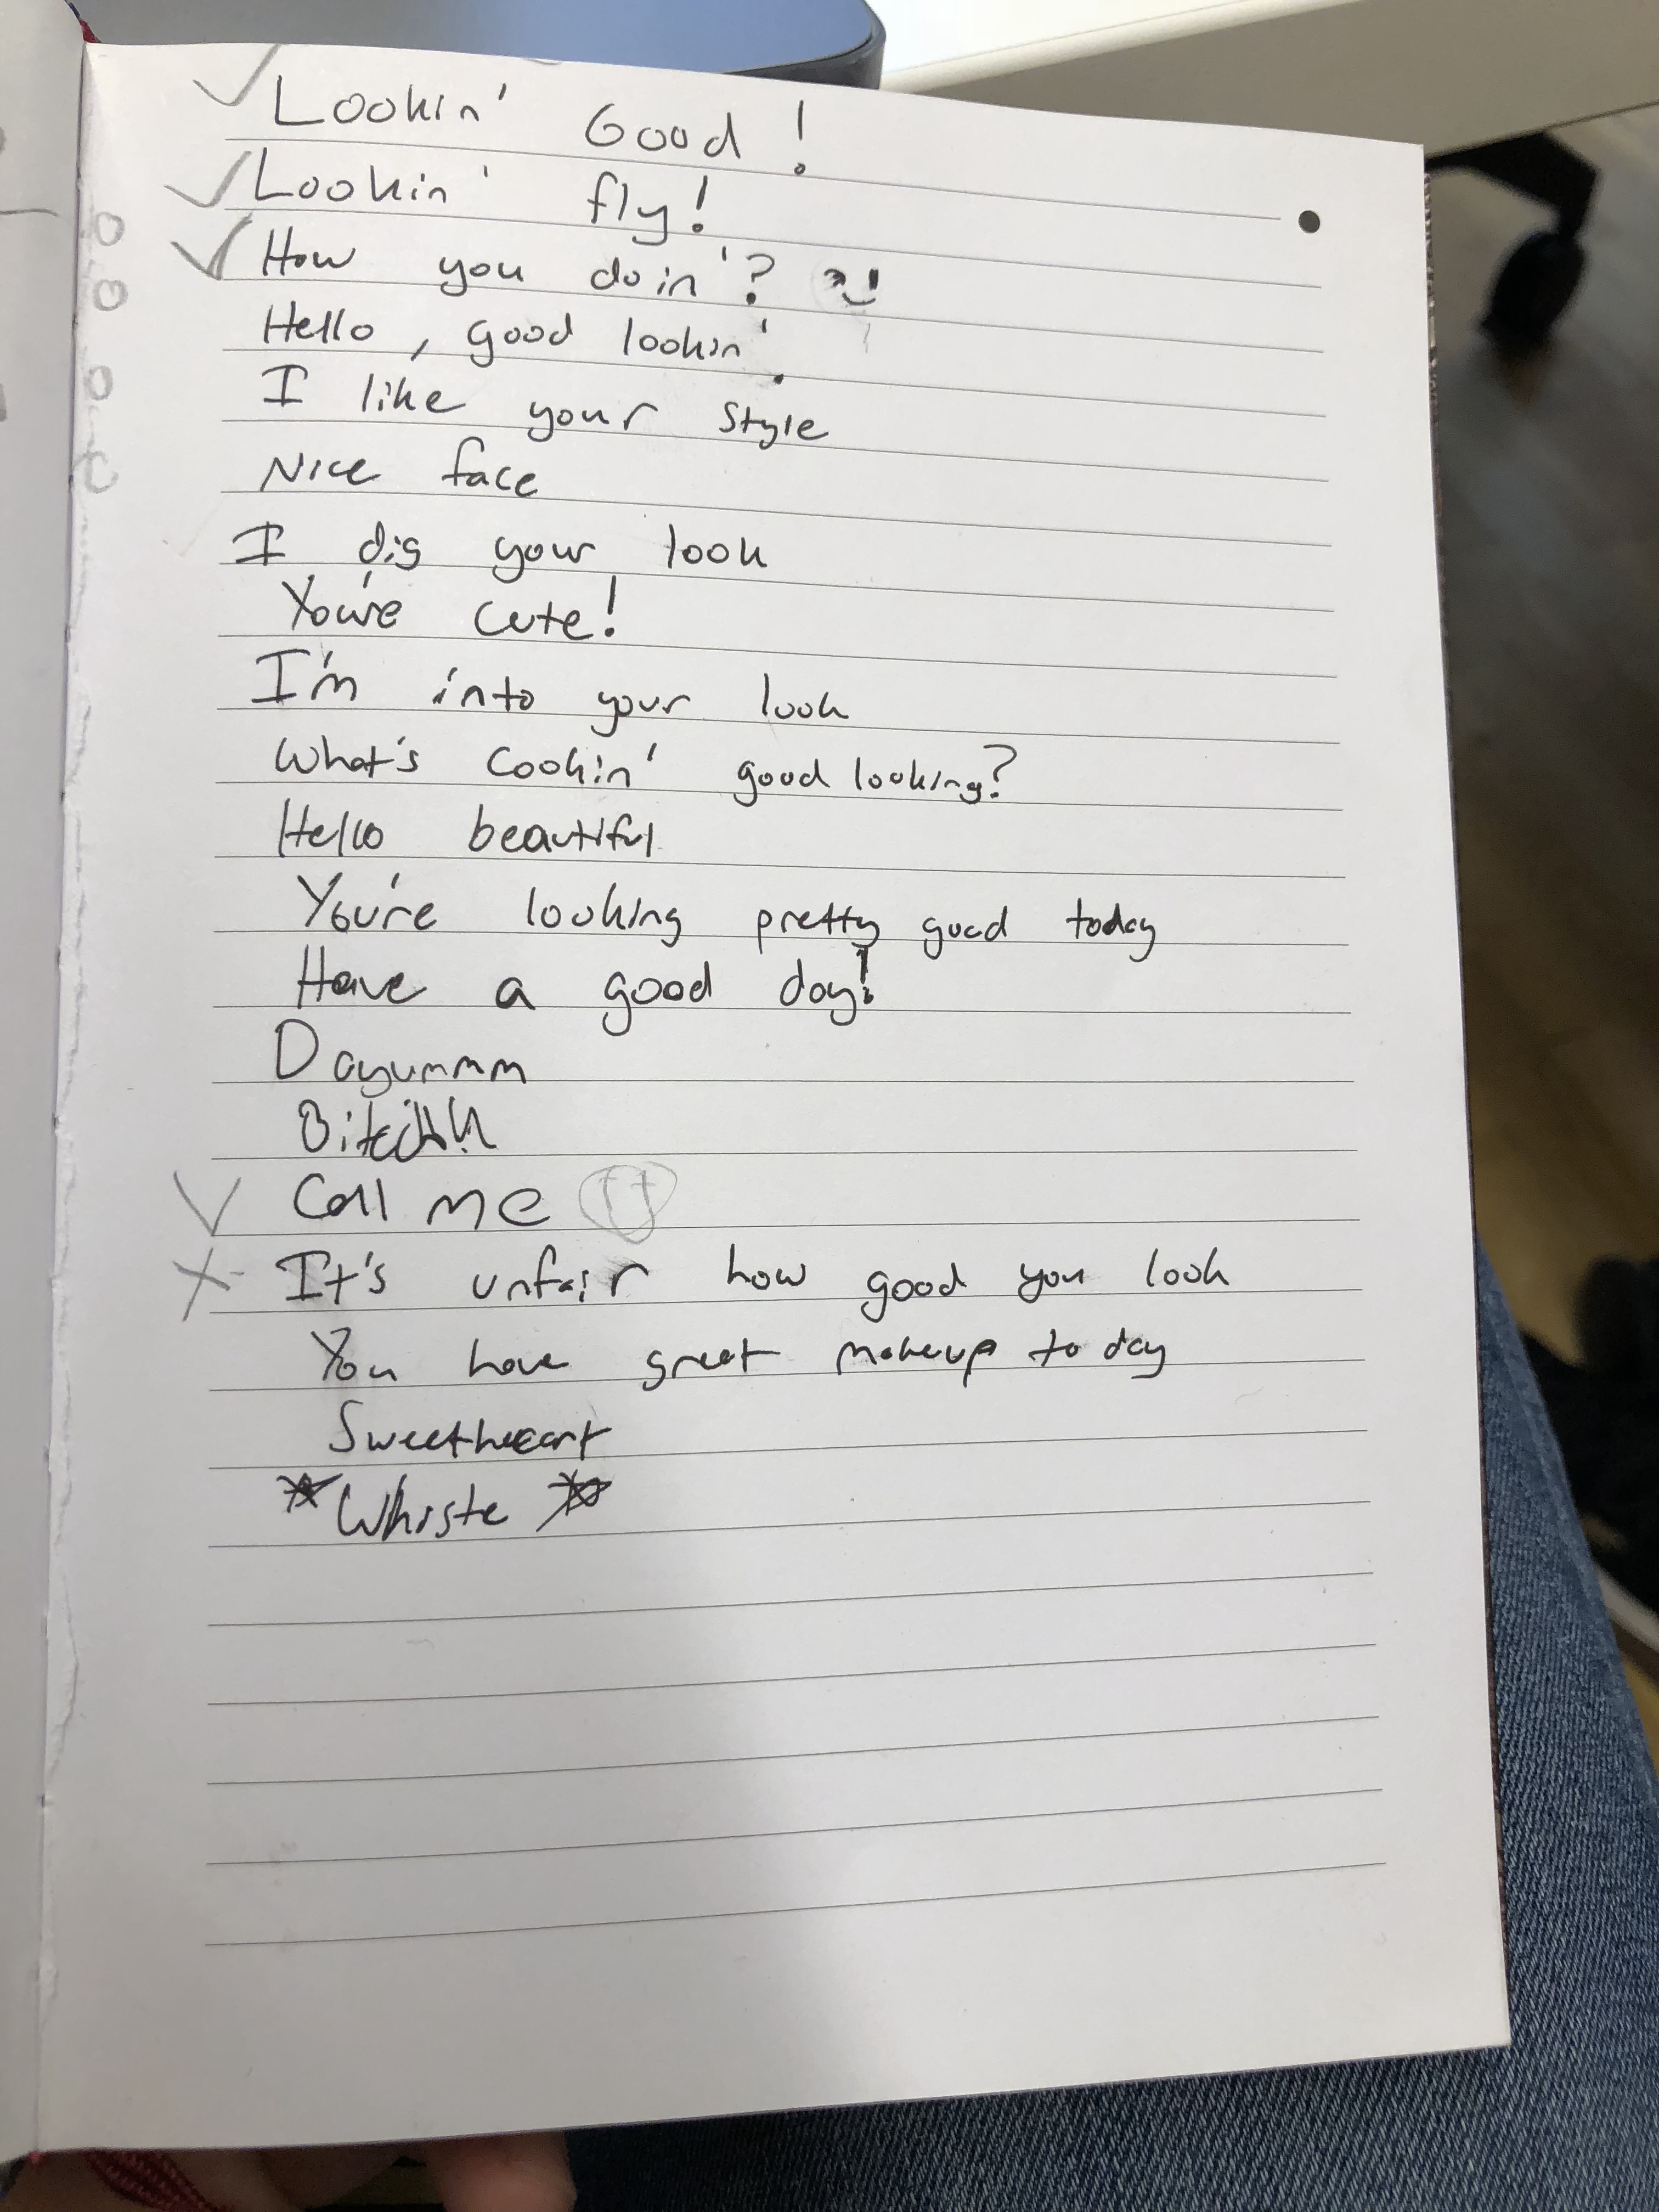 Lookin' Good!
Lookin' fly!
How you doin'?
Hello, good lookin'.
I like your style
Nice face
I dig your look
You're cute!
I'm into your look
What's cookin' good looking?
Hello beautiful
You're looking pretty good today
Have a good day!
Dayummm
Call me
It's unfair how good you look
You have great makeup today
Sweetheart
*Whistle*